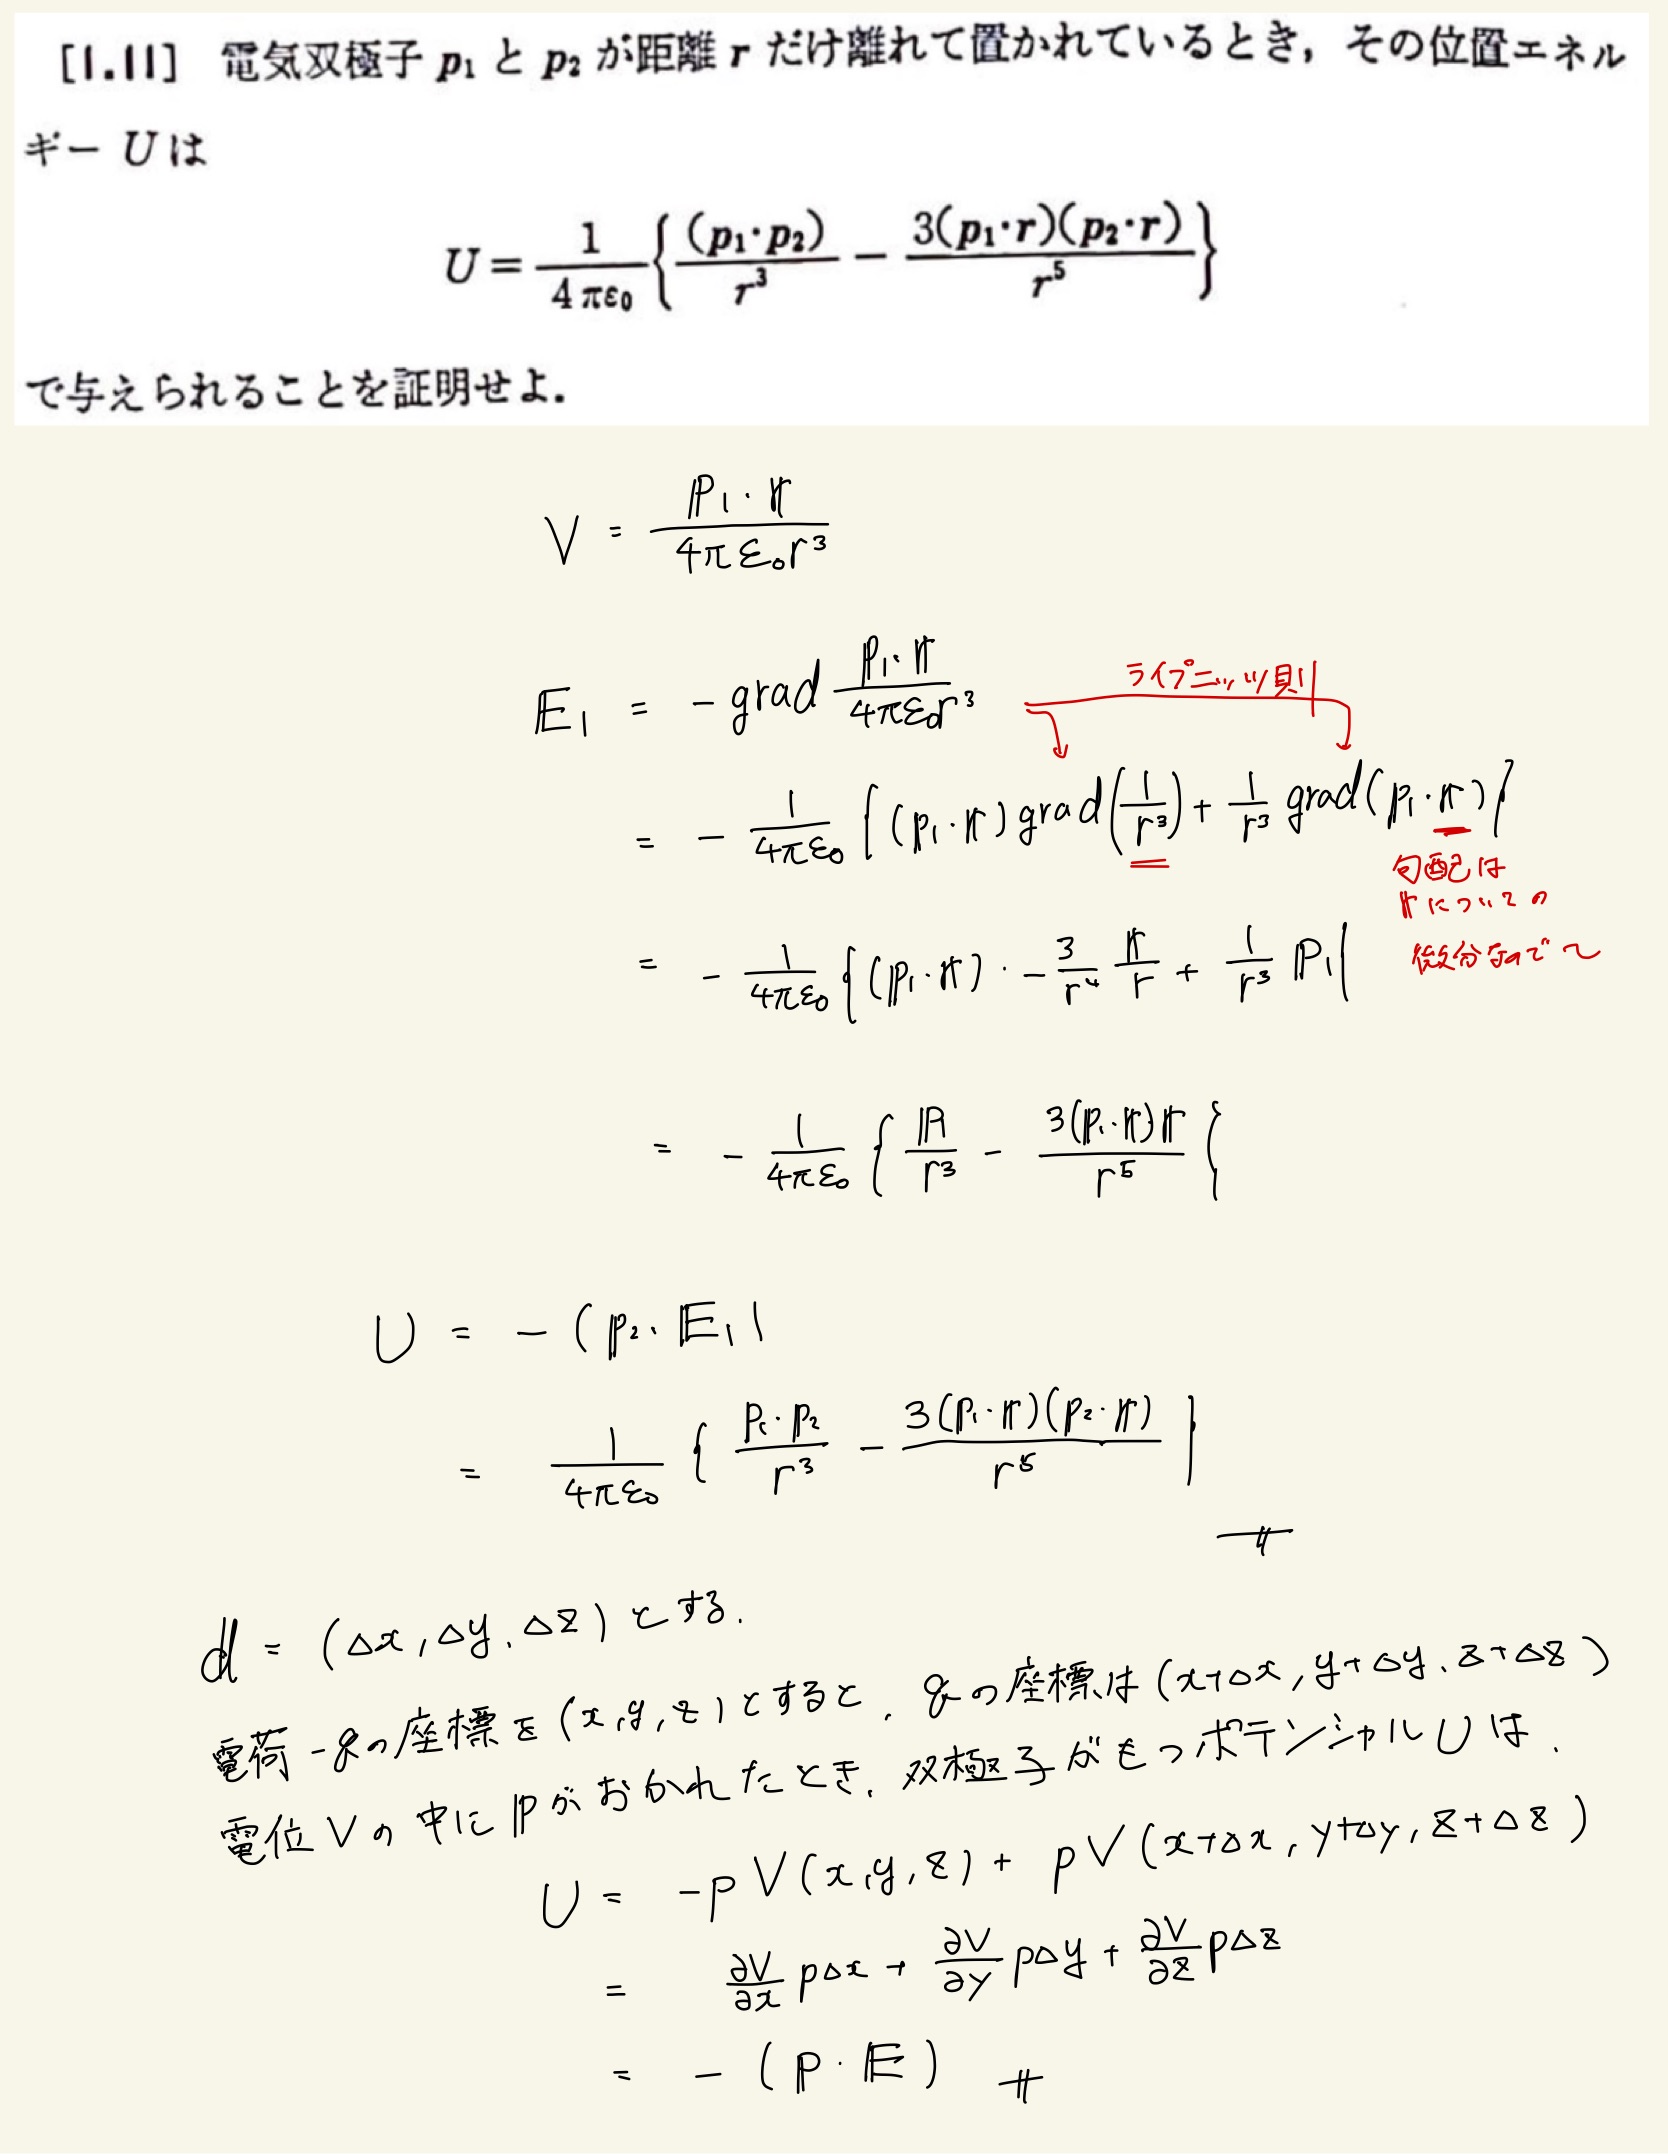 [1.11] 電気双極子 p₁ と p₂ が距離 r だけ離れて置かれているとき，その位置エネル
ギー U は
U = 1/(4πε₀) { (p₁·p₂)/r³ − 3(p₁·r)(p₂·r)/r⁵ }
で与えられることを証明せよ．
V = ℙ₁·𝕣 / 4πε₀r³
𝔼₁ = − grad ℙ₁·𝕣 / 4πε₀r³
ライプニッツ則
= − 1/4πε₀ { (ℙ₁·𝕣) grad(1/r³) + 1/r³ grad(ℙ₁·𝕣) }
勾配は
𝕣についての
微分なので〜
= − 1/4πε₀ { (ℙ₁·𝕣)· − 3/r⁴ 𝕣/r + 1/r³ ℙ₁ }
= − 1/4πε₀ { ℙ₁/r³ − 3(ℙ₁·𝕣)𝕣/r⁵ }
U = − (ℙ₂·𝔼₁)
= 1/4πε₀ { ℙ₁·ℙ₂/r³ − 3(ℙ₁·𝕣)(ℙ₂·𝕣)/r⁵ }
𝕕 = (Δx, Δy, Δz) とする.
電荷 −qの座標を (x, y, z) とすると, qの座標は (x+Δx, y+Δy, z+Δz)
電位 V の 中に ℙ が おかれたとき, 双極子がもつポテンシャル U は.
U = −pV(x, y, z) + pV(x+Δx, y+Δy, z+Δz)
= ∂V/∂x pΔx + ∂V/∂y pΔy + ∂V/∂z pΔz
= − (ℙ·𝔼)